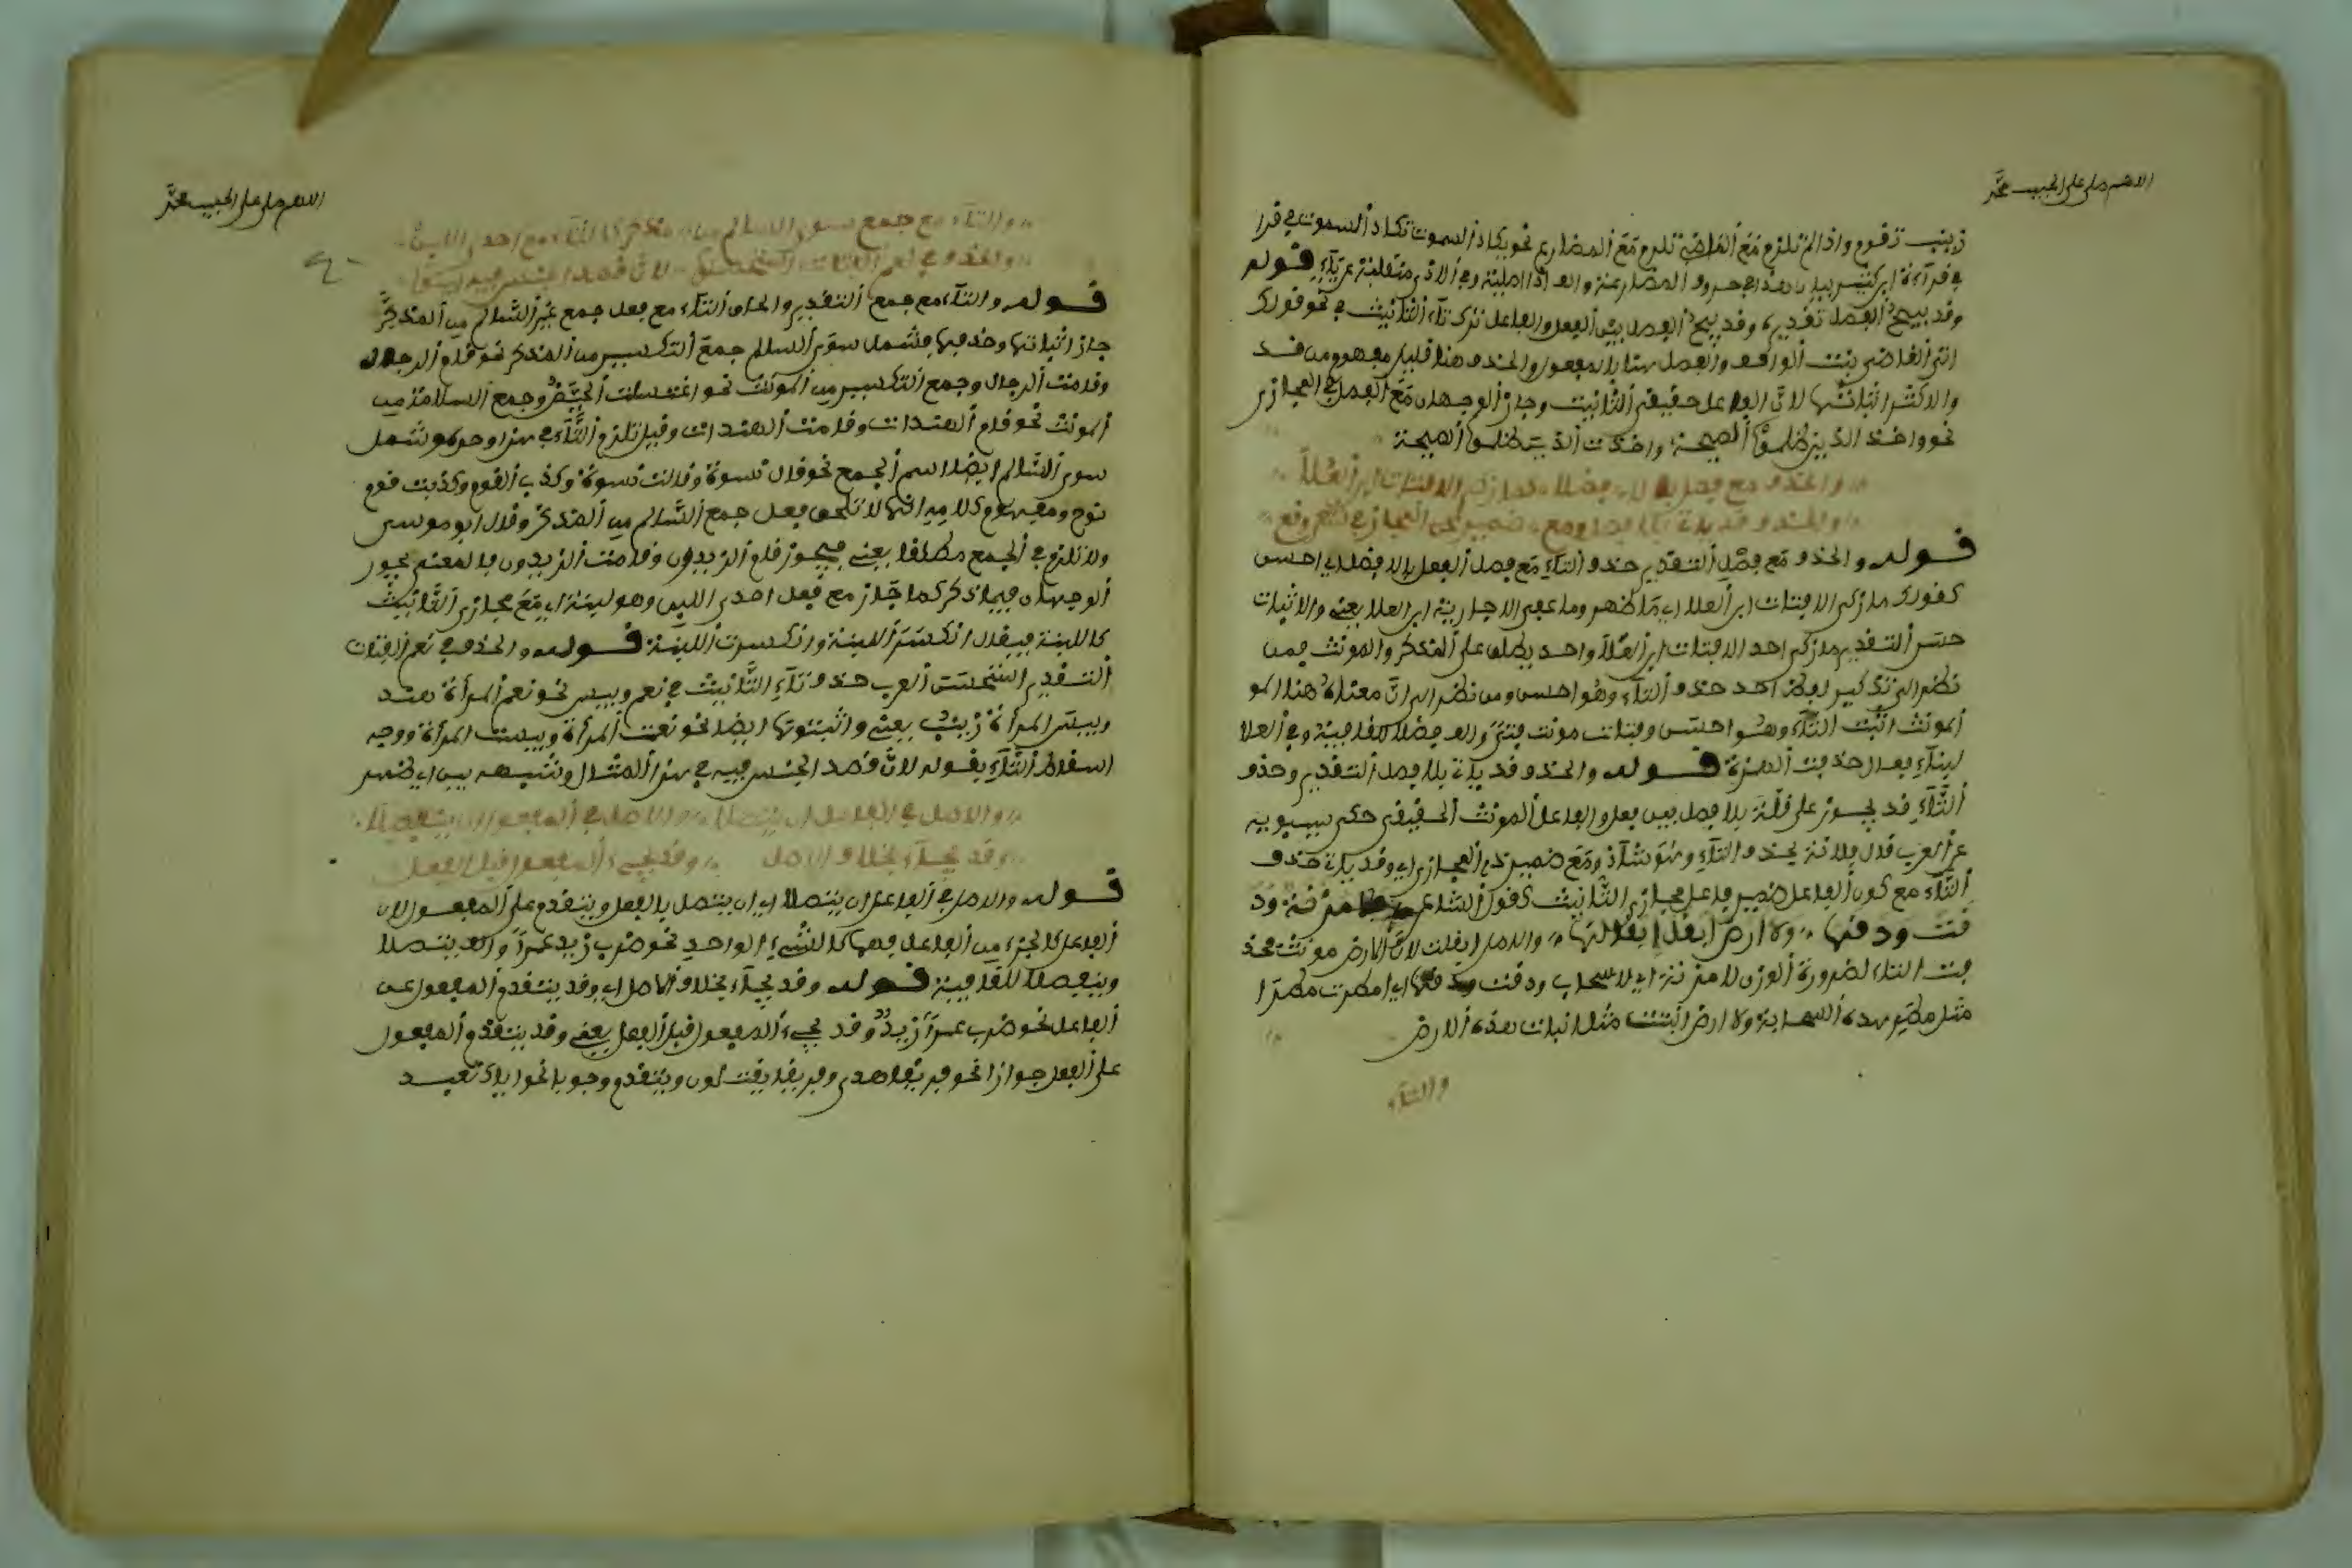 اللهم صل على الحبيب محمد
زينب تقوم واذا لم تلزم مع الماضي تلزم مع المضارع نحو يكاد السموت تكاد السموت في قرا
في قرآءة ابن كثير بيا المضارعة والف اذا قوله
وقد يبيح الفصل تقديره وقد يبيح الفصل بين الفعل والفاعل ترك تآء التانيث في نحو قولك
اتى القاضي بنت الواقف والفصل هنا بالمفعول والحذف هنا قليل مفهوم من قد
والاكثر اثباتها لان الفاعل حقيقي التانيث وجاز الوجهان مع الفصل في المجازي
نحو واخذ الذين ظلموا الصيحة واخذت الذين ظلموا الصيحة
والحذف مع فصل بالا فضلا كما زكى الا فتاة ابن العلا
والحذف قد ياتي بلا فصل ومع ضمير ذي المجاز في شعر وقع
قوله والحذف مع فصل التقدير حذف التآء مع فصل الفعل بالا فضل اي احسن
كقولك ما زكى الا فتاة ابن العلا اي ما طهر وما عفي الا جارية ابن العلا يعني والاثبات
حسن التقدير ما زكى احد الا فتاة ابن العلا واحد يطلق على المذكر والمونث فمن
نظر الى تذكير لفظ احد حذف التآء وهو احسن ومن نظر الى ان معناه هنا المو
المونث اثبت التآء وهو احسن وفتاة مونث فتى والف فضلا للقافية وفي العلا
لبنآء فعال حذفت الهمزة قوله والحذف قد ياتي بلا فصل التقدير وحذف
التآء قد يجوز على قلة بلا فصل بين فعل والفاعل المونث الحقيقي حكى سيبويه
عن العرب قال فلانة بحذف التآء وهو شاذ ومع ضمير ذي المجازي اي وقد ياتي حذف
التآء مع كون الفاعل ضمير فاعل مجازي التانيث كقول الشاعر فلا مزنة ود
قت ودقها ولا ارض ابقل ابقالها والاصل ابقلت لان الارض مونث فحذ
فت التاء لضرورة الوزن لا مزنة اي لا سحاب ودقت ودقها اي امطرت مطرا
مثل مطر هذه السحابة ولا ارض انبتت مثل انبات هذه الارض
والتآء
اللهم صل على الحبيب محمد
والتآء مع جمع سوى السالم من مذكر كالتآء مع احدى اللبن
والحذف في نعم الفتاة استحسنوا لان قصد الجنس فيه بين
قوله والتآء مع جمع التقدير والحاق التآء مع فعل جمع غير السالم من المذكر
جاز اثباتها وحذفها فشمل سوى السالم جمع التكسير من المذكر نحو قام الرجال
وقامت الرجال وجمع التكسير من المونث نحو وجمع السلامة من
المونث نحو قام الهندات وقامت الهندات وقيل تلزم التآء في هذا وحده وشمل
سوى السالم ايضا اسم الجمع نحو قال نسوة وقالت نسوة وكذب القوم وكذبت قوم
نوح ومفهوم كلامه انها لا تلحق فعل جمع السالم من المذكر وقال ابو موسى
ولا تلزم في الجمع مطلقا يعني فيجوز قام الزيدون وقامت الزيدون فالمعنى يجوز
الوجهان فيما ذكر كما جاز مع فعل احدى اللبن وهو لبنة اي مع مجازي التانيث
كاللبنة فيقال انكسر اللبنة وانكسرت اللبنة قوله والحذف في نعم الفتات
التقدير استحسنت العرب حذف تآء التانيث في نعم وبيس نحو نعم المرأة هند
وبيس المرأة زينب يعني واثبتوتها ايضا نحو نعمت المرأة وبيست المرأة ووجه
اسقاط التآء بقوله لان قصد الجنس فيه في هذا المثال وشبهه بين اي ظهر
والاصل في الفاعل ان يتصلا والاصل في المفعول ان ينفصلا
وقد يجآء بخلاف الاصل وقد يجيء المفعول قبل الفعل
قوله والاصل في الفاعل ان يتصلا اي ان يتصل بالفعل ويتقدم على المفعول لان
الفاعل كالجزء من الفاعل فهما كالشيء الواحد نحو ضرب زيد عمرا والف يتصلا
وينفصلا للقافية قوله وقد يجآء بخلاف الاصل اي وقد يتقدم المفعول عن
الفاعل نحو ضرب عمرا زيد وقد يجيء المفعول قبل الفعل يعني وقد يتقدم المفعول
على الفعل جوازا نحو فريقا هدى وفريقا يقتلون ويتقدم وجوبا نحو اياك نعبد